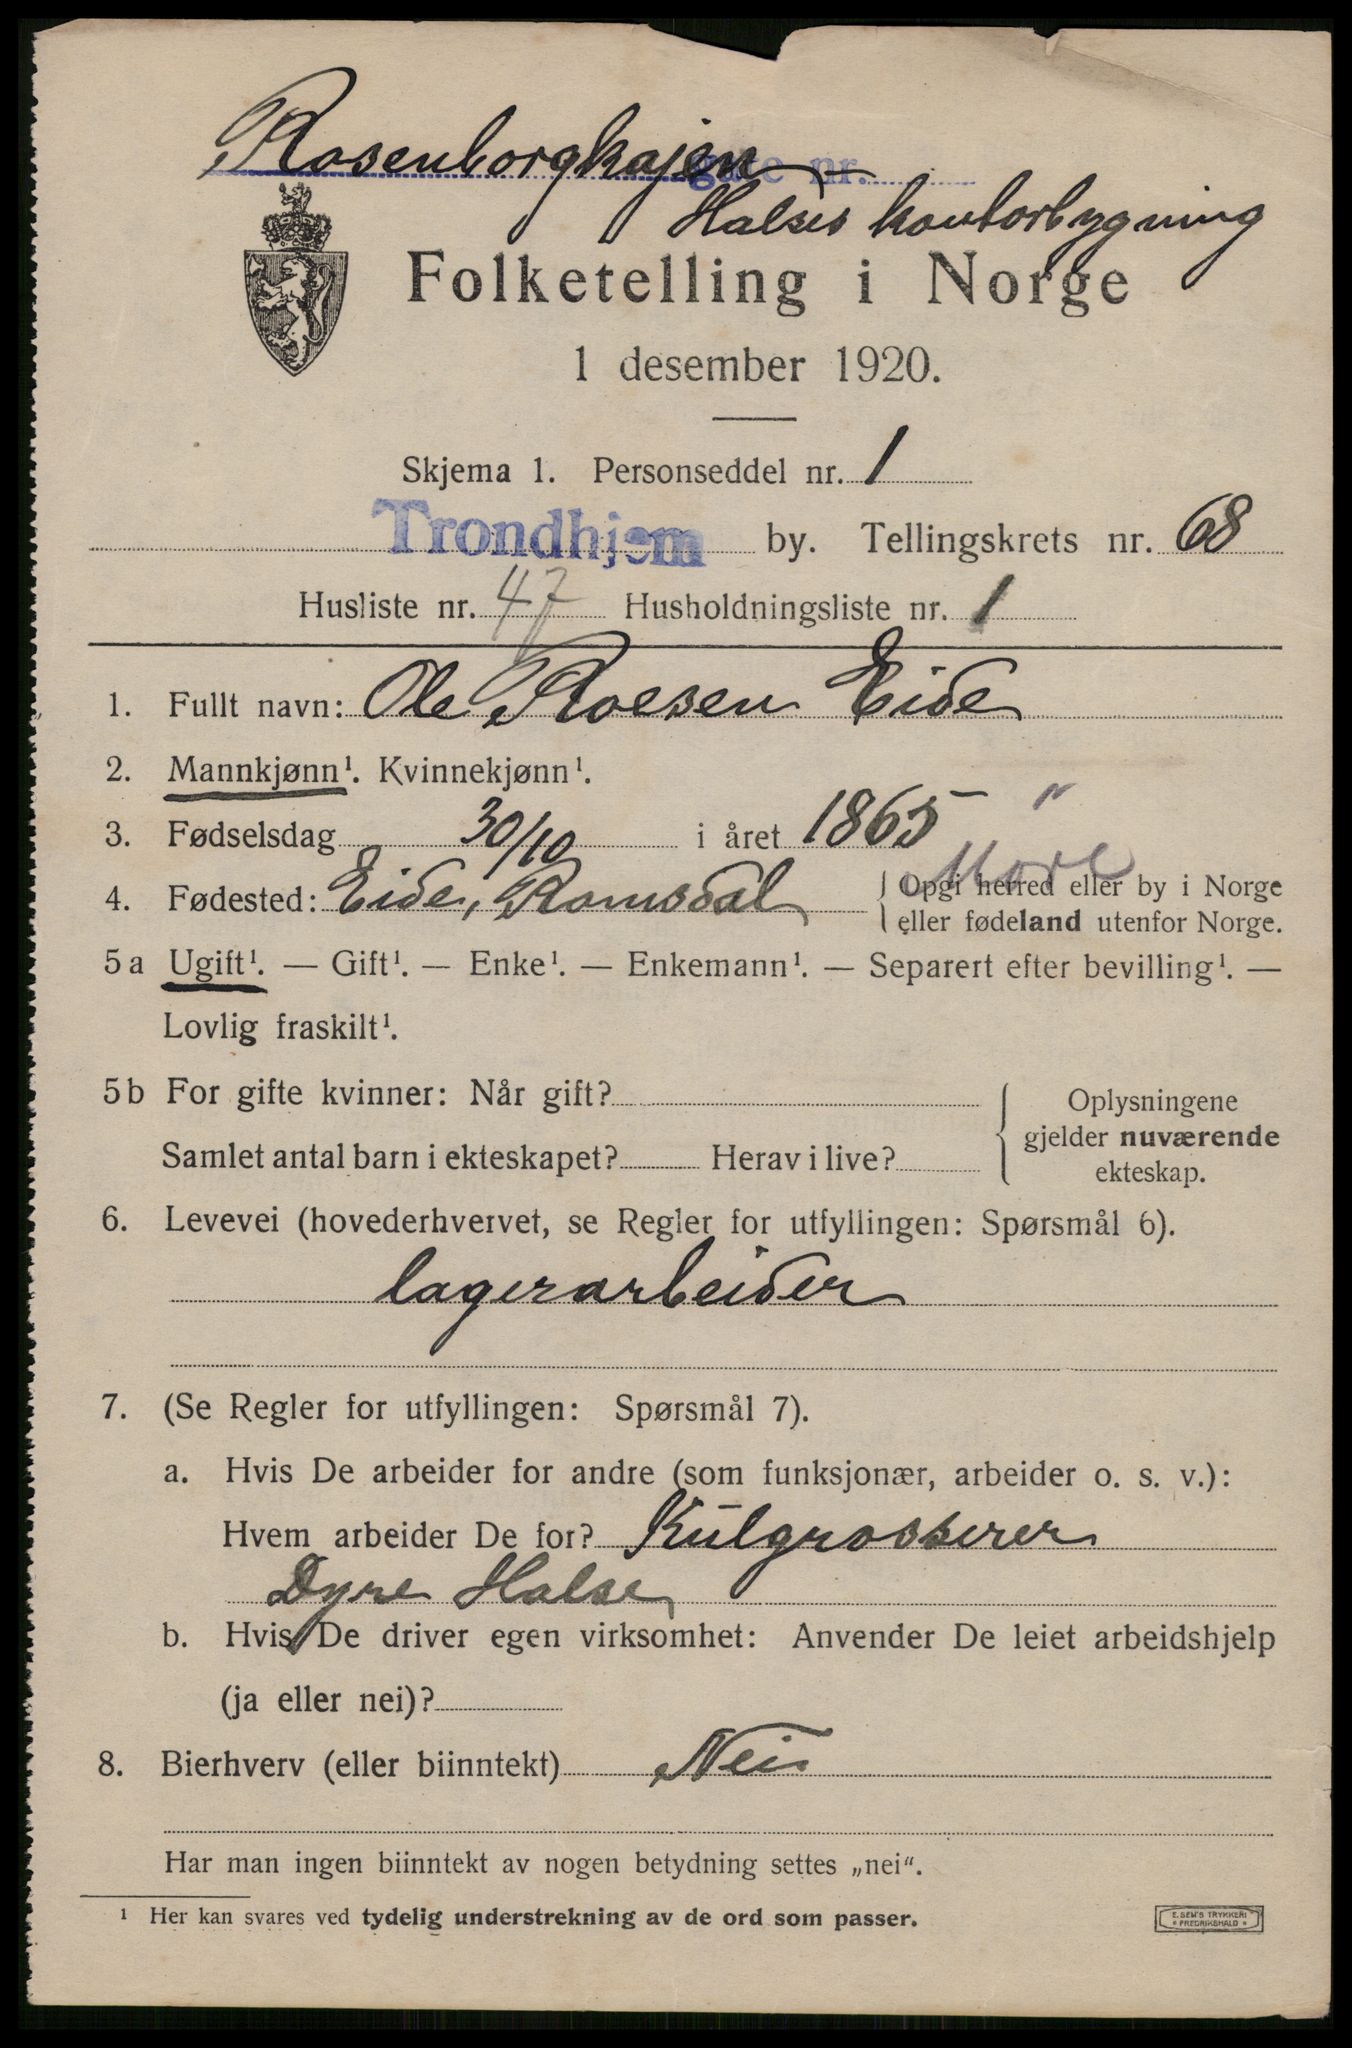 Rosenborgkajen gate nr. —
Halses kontorbygning
Folketelling i Norge
1 desember 1920.
Skjema 1. Personseddel nr. 1
Trondhjem by. Tellingskrets nr. 68
Husliste nr. 47 Husholdningsliste nr. 1
1. Fullt navn: Ole Roesen Eide
2. Mannkjønn¹. Kvinnekjønn¹.
3. Fødselsdag 30/10 i året 1865 "
4. Fødested: Eide, Romsdal Møre { Opgi herred eller by i Norge
eller fødeland utenfor Norge.
5a Ugift¹. — Gift¹. — Enke¹. — Enkemann¹. — Separert efter bevilling¹. —
Lovlig fraskilt¹.
5b For gifte kvinner: Når gift?
Samlet antal barn i ekteskapet? Herav i live?
Oplysningene
gjelder nuværende
ekteskap.
6. Levevei (hovederhvervet, se Regler for utfyllingen: Spørsmål 6).
lagerarbeider
7. (Se Regler for utfyllingen: Spørsmål 7).
a. Hvis De arbeider for andre (som funksjonær, arbeider o. s. v.):
Hvem arbeider De for? Kulgrosserer
Dyre Halse
b. Hvis De driver egen virksomhet: Anvender De leiet arbeidshjelp
(ja eller nei)?
8. Bierhverv (eller biinntekt) Nei
Har man ingen biinntekt av nogen betydning settes „nei“.
¹ Her kan svares ved tydelig understrekning av de ord som passer.
E. SEM'S TRYKKERI
* FREDRIKSHALD *